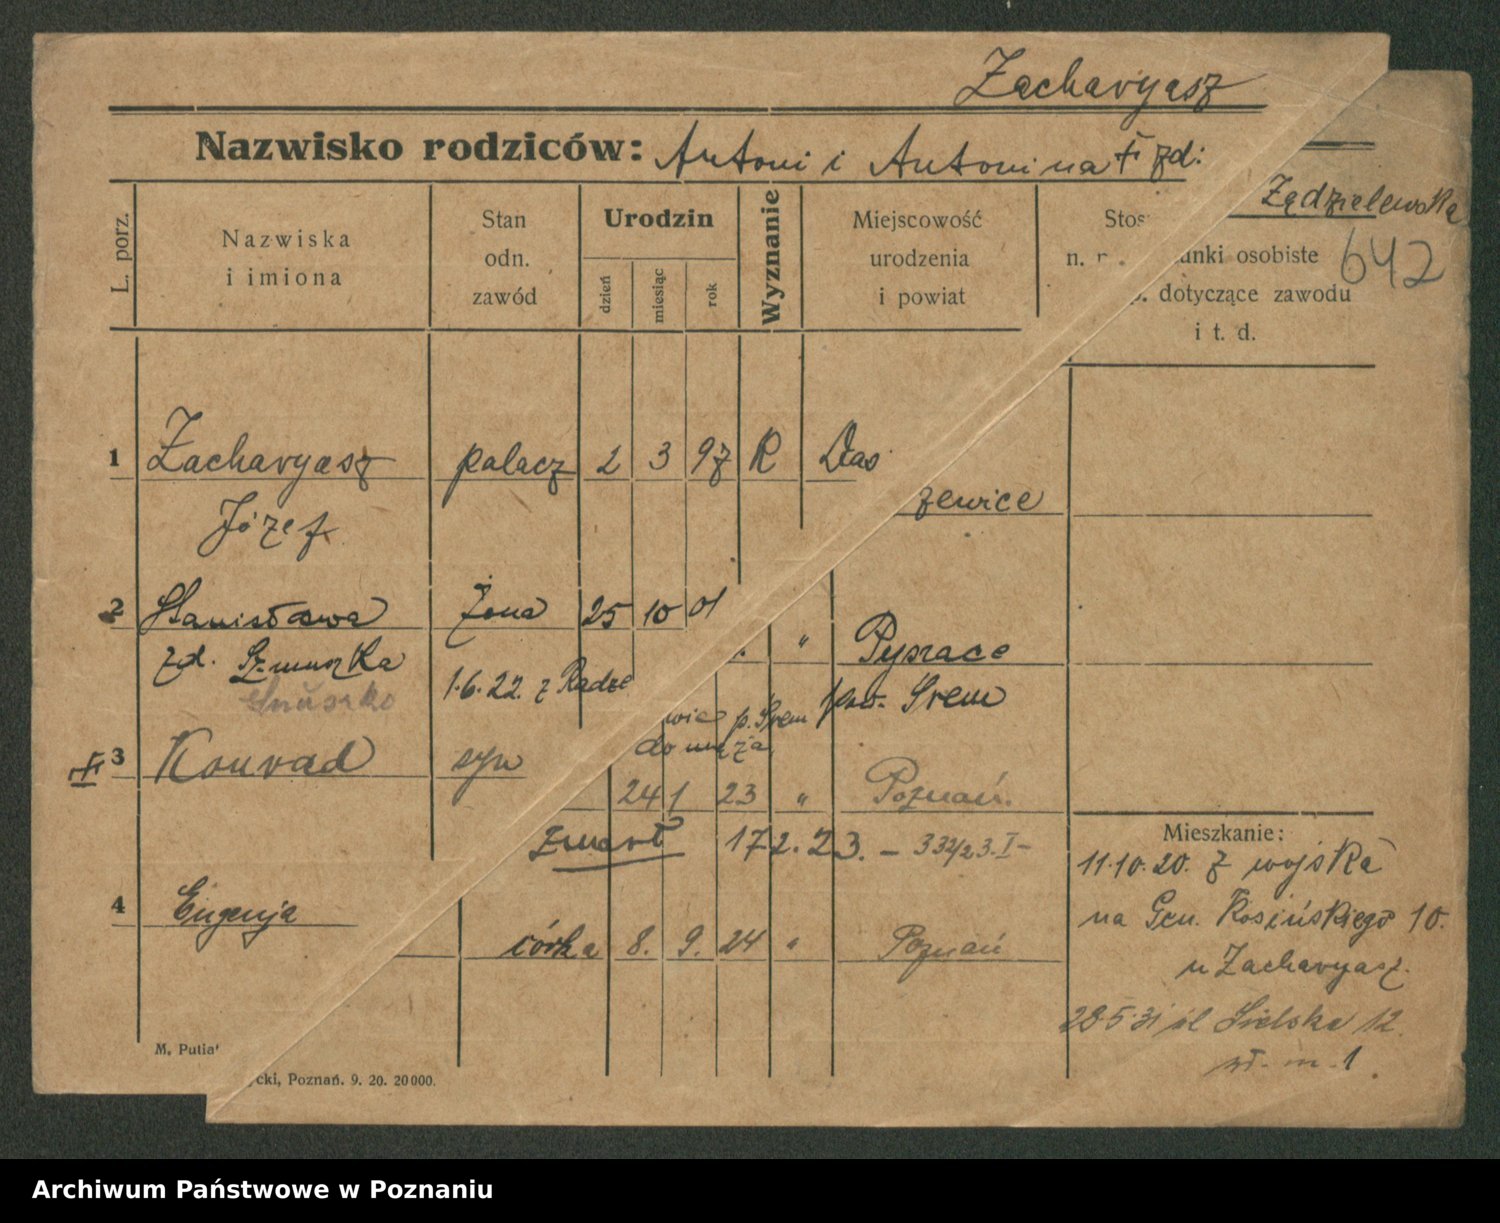 Zacharyasz
Nazwisko rodziców: Antoni i Antonina † zd:
Żądzielewska
642
L. porz.
Nazwiska i imiona
Stan odn. zawód
Urodzin
dzień
miesiąc
rok
Wyznanie
Miejscowość urodzenia i powiat
Stos
n. p.
unki osobiste
dotyczące zawodu
i t. d.
1 Zacharyasz palacz 2 3 97 R Das
zewice
Józef
2 Stanisława żona 25 10 01
" Pysząca
zd. Szmuszka
1.6.22. z Radze
pow. Śrem
Smuszko
wic p. Śrem
do męża
3 Konrad syn
24 1 23 " Poznań.
zmarł 17 2. 23. – 332/23. I –
4 Eugenja
córka 8. 9. 24 " Poznań
Mieszkanie:
11.10.20. z wojska
na Gen. Kosińskiego 10.
u Zacharyasz.
28.5.31 ul Sielska 12.
wł. m. 1.
M. Putia
cki, Poznań. 9. 20. 20000.
Archiwum Państwowe w Poznaniu